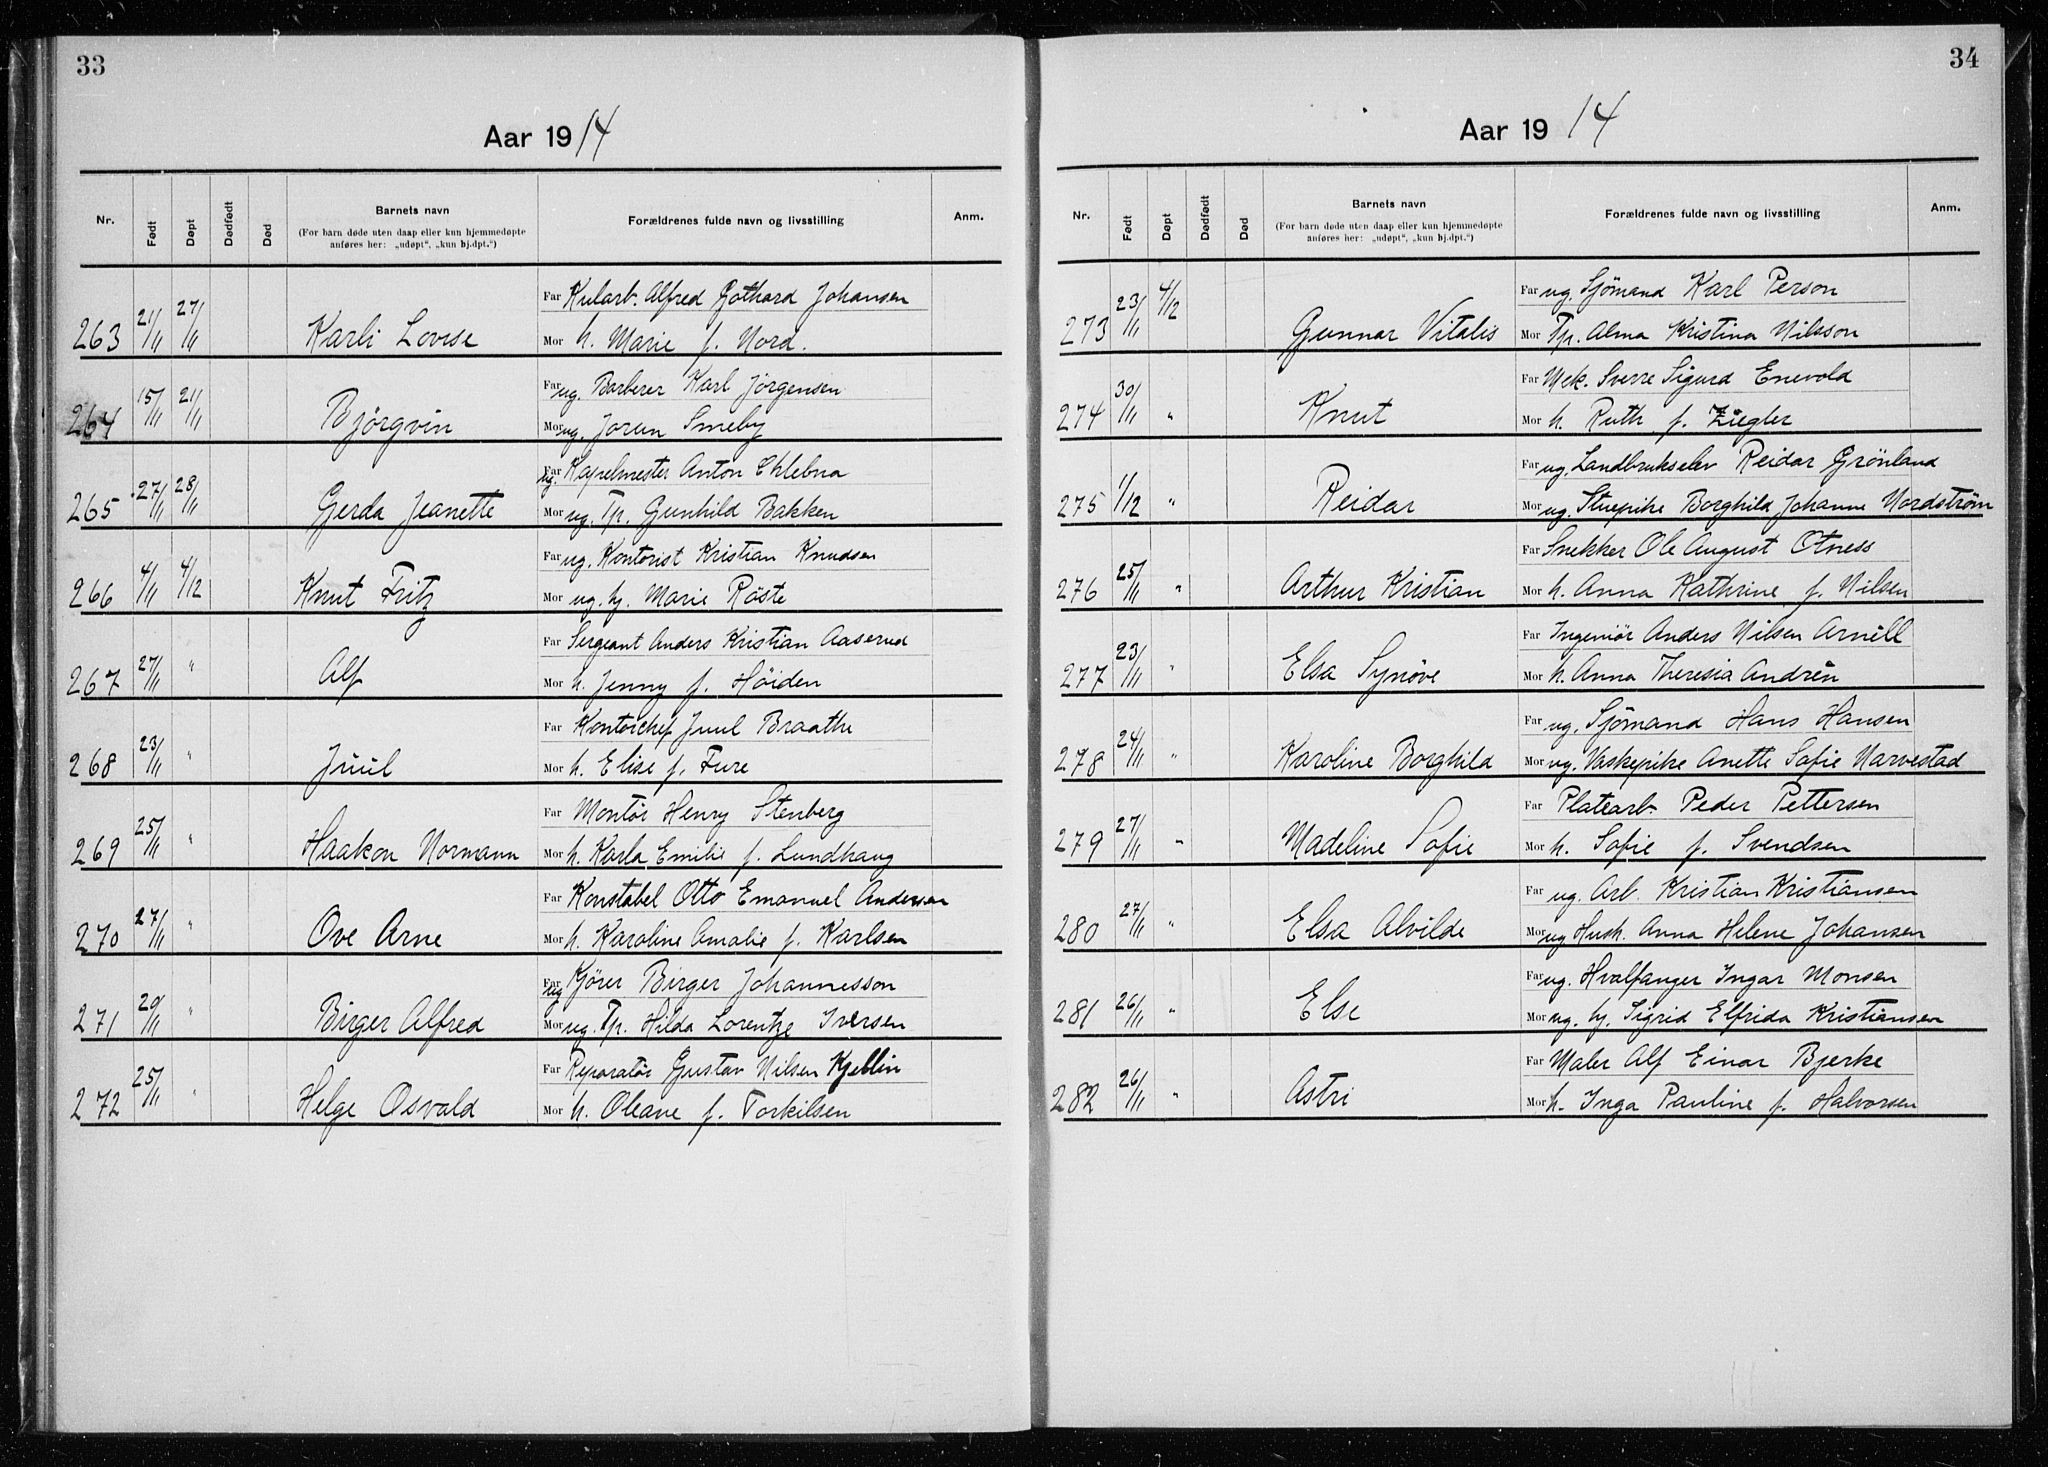 33
Aar 1914
Nr.
Født
Døpt
Dødfødt
Død
Barnets navn
(For barn døde uten daap eller kun hjemmedøpte
anføres her: „udøpt“, „kun hj.dpt.“)
Forældrenes fulde navn og livsstilling
Anm.
Far Kularb. Alfred Gothard Johansen
263 21/11 27/11 Karli Lovise Mor h. Marie f. Nord.
Far ug. Barberer Karl Jørgensen
264 15/11 21/11 Bjørgvin Mor ug. Jorun Smeby
Far ug. Kapelmester Anton Chlebna
265 27/11 28/11 Gerda Jeanette Mor ug. Tp. Gunhild Bakken
Far ug. Kontorist Kristian Knudsen
266 4/11 4/12 Knut Fritz Mor ug. hj. Marie Röste
Far Sergeant Anders Kristian Aaserud
267 27/11 " Alf Mor h. Jenny f. Höiden
Far Kontorchef Juul Braathe
268 23/11 " Juul Mor h. Elise f. Fure
Far Montör Henry Stenberg
269 25/11 " Haakon Normann Mor h. Karla Emilie f. Lundhaug
Far Konstabel Otto Emanuel Andersen
270 27/11 " Ove Arne Mor h. Karoline Amalie f. Karlsen
Far ug Kjörer Birger Johannesson
271 20/11 " Birger Alfred Mor ug. Tp. Hilda Lorentze Iversen
Far Reparatör Gustav Nilsen Kjellin
272 25/11 " Helge Osvald Mor h. Oleane f. Torkilsen
34
Aar 1914
Nr.
Født
Døpt
Dødfødt
Død
Barnets navn
(For barn døde uten daap eller kun hjemmedøpte
anføres her: „udøpt“, „kun hj.dpt.“)
Forældrenes fulde navn og livsstilling
Anm.
Far ug. Sjömand Karl Person
273 23/11 4/12 Gunnar Vitalis Mor Tp. Alma Kristina Nilsson
Far Mek. Sverre Sigurd Enevold
274 30/11 " Knut Mor h. Ruth f. Ziegler
Far ug. Landbrukselev Reidar Grönland
275 1/12 " Reidar Mor ug. Stuepike Borghild Johanne Nordström
Far Snekker Ole August Otness
276 25/11 " Arthur Kristian Mor h. Anna Kathrine f. Nilsen
Far Ingeniör Anders Nilsen Arnell
277 23/11 " Elsa Synöve Mor h. Anna Theresia Andrén
Far ug. Sjömand Hans Hansen
278 24/11 " Karoline Borghild Mor ug. Vaskepike Anette Sofie Narvestad
Far Platearb. Peder Pettersen
279 27/11 " Madeline Sofie Mor h. Sofie f. Svendsen
Far ug. Arb. Kristian Kristiansen
280 27/11 " Elsa Alvilde Mor ug Hush. Anna Helene Johansen
Far ug. Hvalfanger Ingar Monsen
281 26/11 " Else Mor ug. hj. Sigrid Elfrida Kristiansen
Far Maler Alf Einar Bjerke
282 26/11 " Astri Mor h. Inga Pauline f. Halvorsen